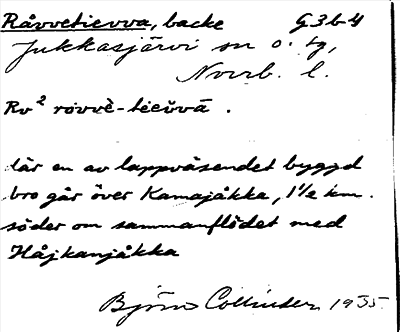 Råvvetievva, backe G3b-4
Jukkasjärvi sn o. tg,
Norrb. l.
Rv² rovvè-tieŭvā .
där en av lappväsendet byggd
bro går över Kamajåkka, 1½ km.
söder om sammanflödet med
Håjkanjåkka
Björn Collinder 1935.